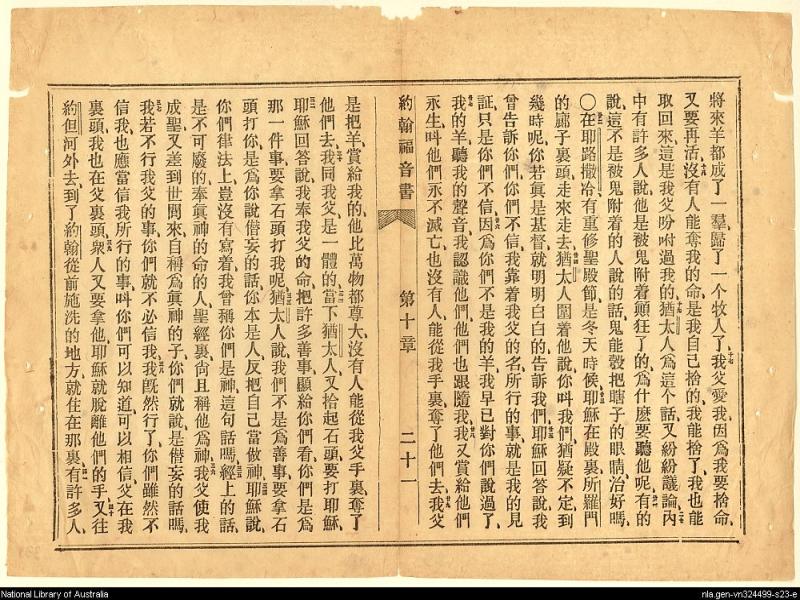 將來羊都成了一羣、歸了一个牧人了、十七我父愛我、因爲我要捨命、
又要再活、十八沒有人能奪我的命、是我自己捨的、我能捨了、我也能
取回來、這是我父吩咐過我的、十九猶太人爲這个話、又紛紛議論、二十內
中有許多人說、他是被鬼附着顚狂了的、爲什麽要聽他呢、廿一有的
說、這不是被鬼附着的人說的話、鬼能彀把瞎子的眼睛治好嗎、
〇廿二在耶路撒冷有重修聖殿節、是冬天時候、廿三耶穌在殿裏所羅門
的廊子裏頭走來走去、廿四猶太人圍着他說、你叫我們猶疑不定到
幾時呢、你若眞是基督、就明明白白的告訴我們、廿五耶穌回答說、我
曾告訴你們、你們不信、我靠着我父的名所行的事、就是我的見
証、廿六只是你們不信、因爲你們不是我的羊、我早已對你們說過了、
廿七我的羊聽我的聲音、我認識他們、他們也跟隨我、廿八我又賞給他們
永生、叫他們永不滅亡、也沒有人能從我手裏奪了他們去、廿九我父
約翰福音書 第十章 二十一
是把羊賞給我的、他比萬物都尊大、沒有人能從我父手裏奪了
他們去、三十我同我父是一體的、卅一當下猶太人又拾起石頭要打耶穌、
卅二耶穌回答說、我奉我父的命、把許多善事顯給你們看、你們是爲
那一件事、要拿石頭打我呢、卅三猶太人說、我們不是爲善事要拿石
頭打你、是爲你說僭妄的話、你本是人、反把自己當做神、卅四耶穌說、
你們律法上、豈沒有寫着我曾稱你們是神、這句話嗎、卅五經上的話、
是不可廢的、奉眞神的命的人、聖經裏尙且稱他爲神、卅六我父使我
成聖、又差到世間來、自稱爲眞神的子、你們就說是僭妄的話嗎、
卅七我若不行我父的事、你們就不必信我、卅八我旣然行了、你們雖然不
信我、也應當信我所行的事、叫你們可以知道、可以相信、父在我
裏頭、我也在父裏頭、卅九衆人又要拿他、耶穌就脫離他們的手、四十又往
約但河外去、到了約翰從前施洗的地方、就住在那裏、四一有許多人
National Library of Australia
nla.gen-vn324499-s23-e